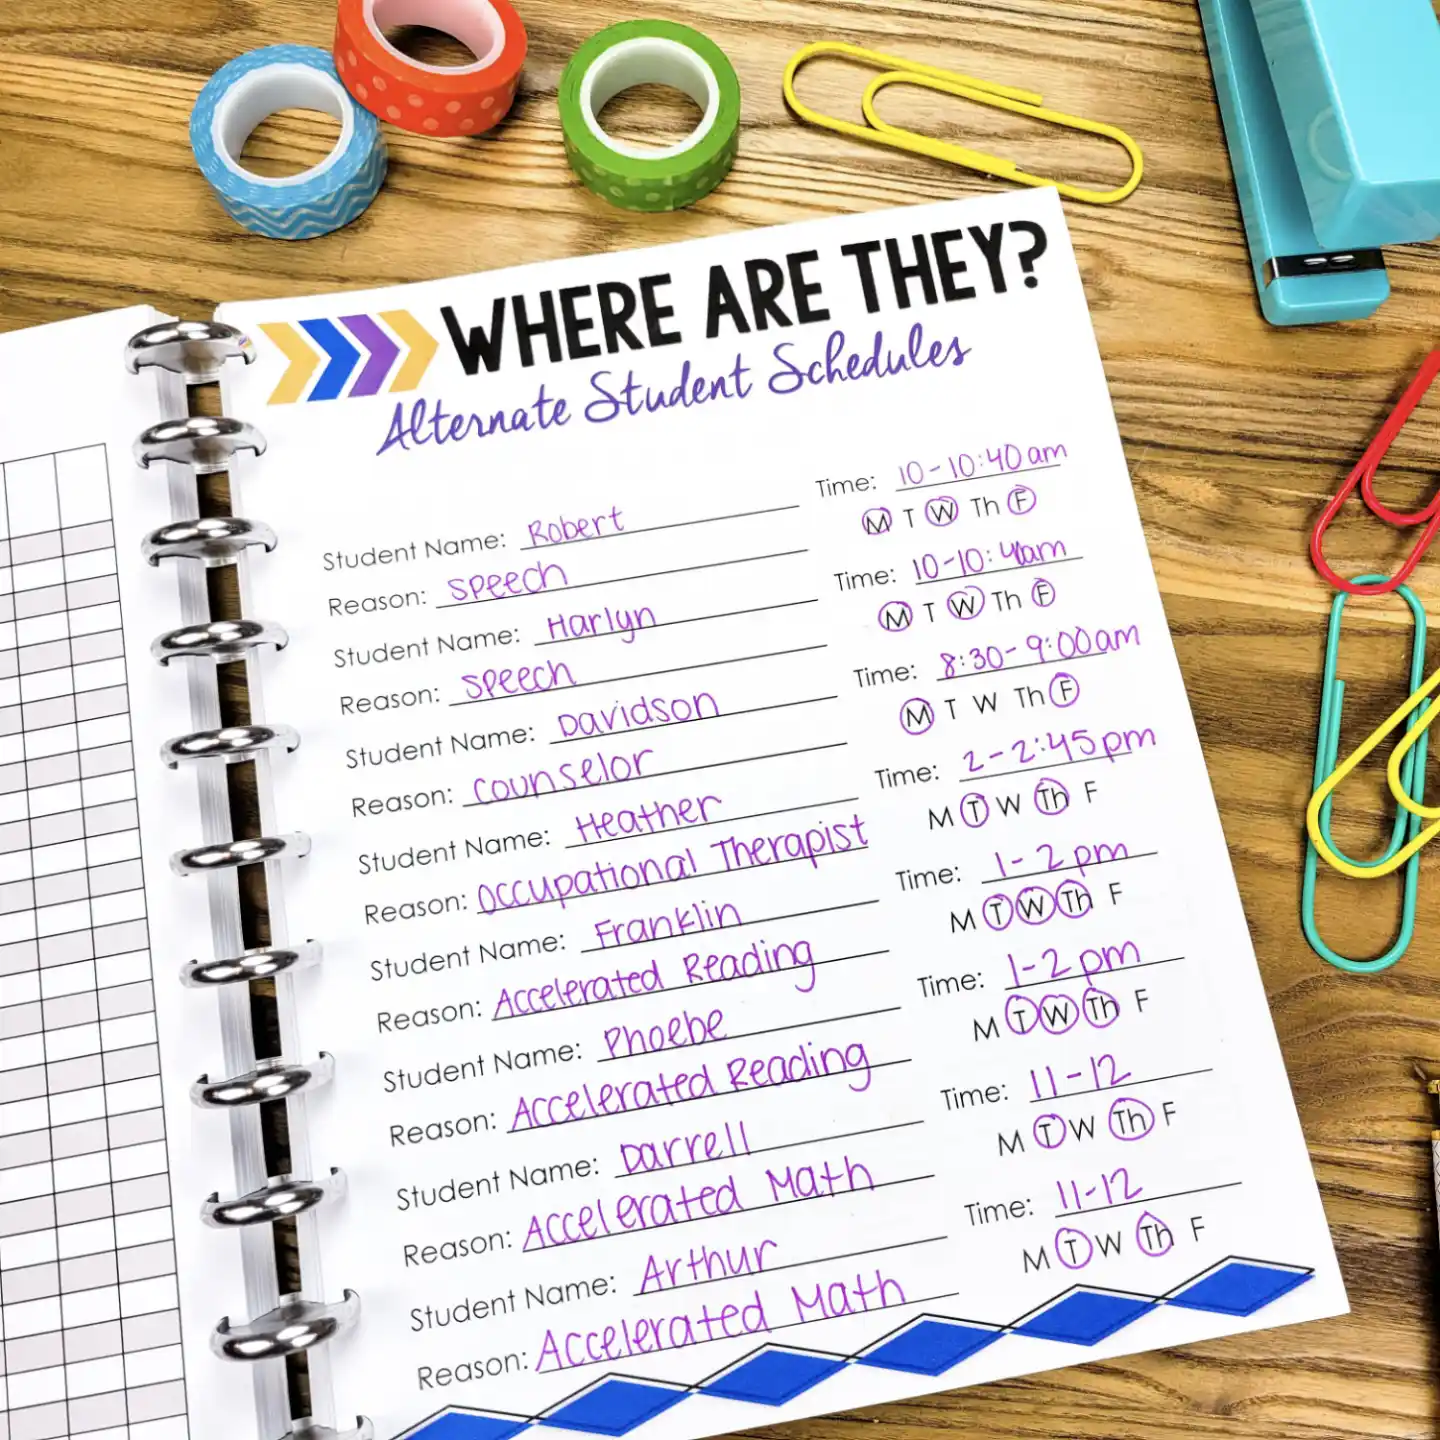 WHERE ARE THEY?
Alternate Student Schedules
Student Name: Robert Time: 10-10:40am
Reason: Speech M T W Th F
Student Name: Harlyn Time: 10-10:40am
Reason: Speech M T W Th F
Student Name: Davidson Time: 8:30-9:00am
Reason: Counselor M T W Th F
Student Name: Heather Time: 2-2:45pm
Reason: Occupational Therapist M T W Th F
Student Name: Franklin Time: 1-2pm
Reason: Accelerated Reading M T W Th F
Student Name: Phoebe Time: 1-2pm
Reason: Accelerated Reading M T W Th F
Student Name: Darrell Time: 11-12
Reason: Accelerated Math M T W Th F
Student Name: Arthur Time: 11-12
Reason: Accelerated Math M T W Th F